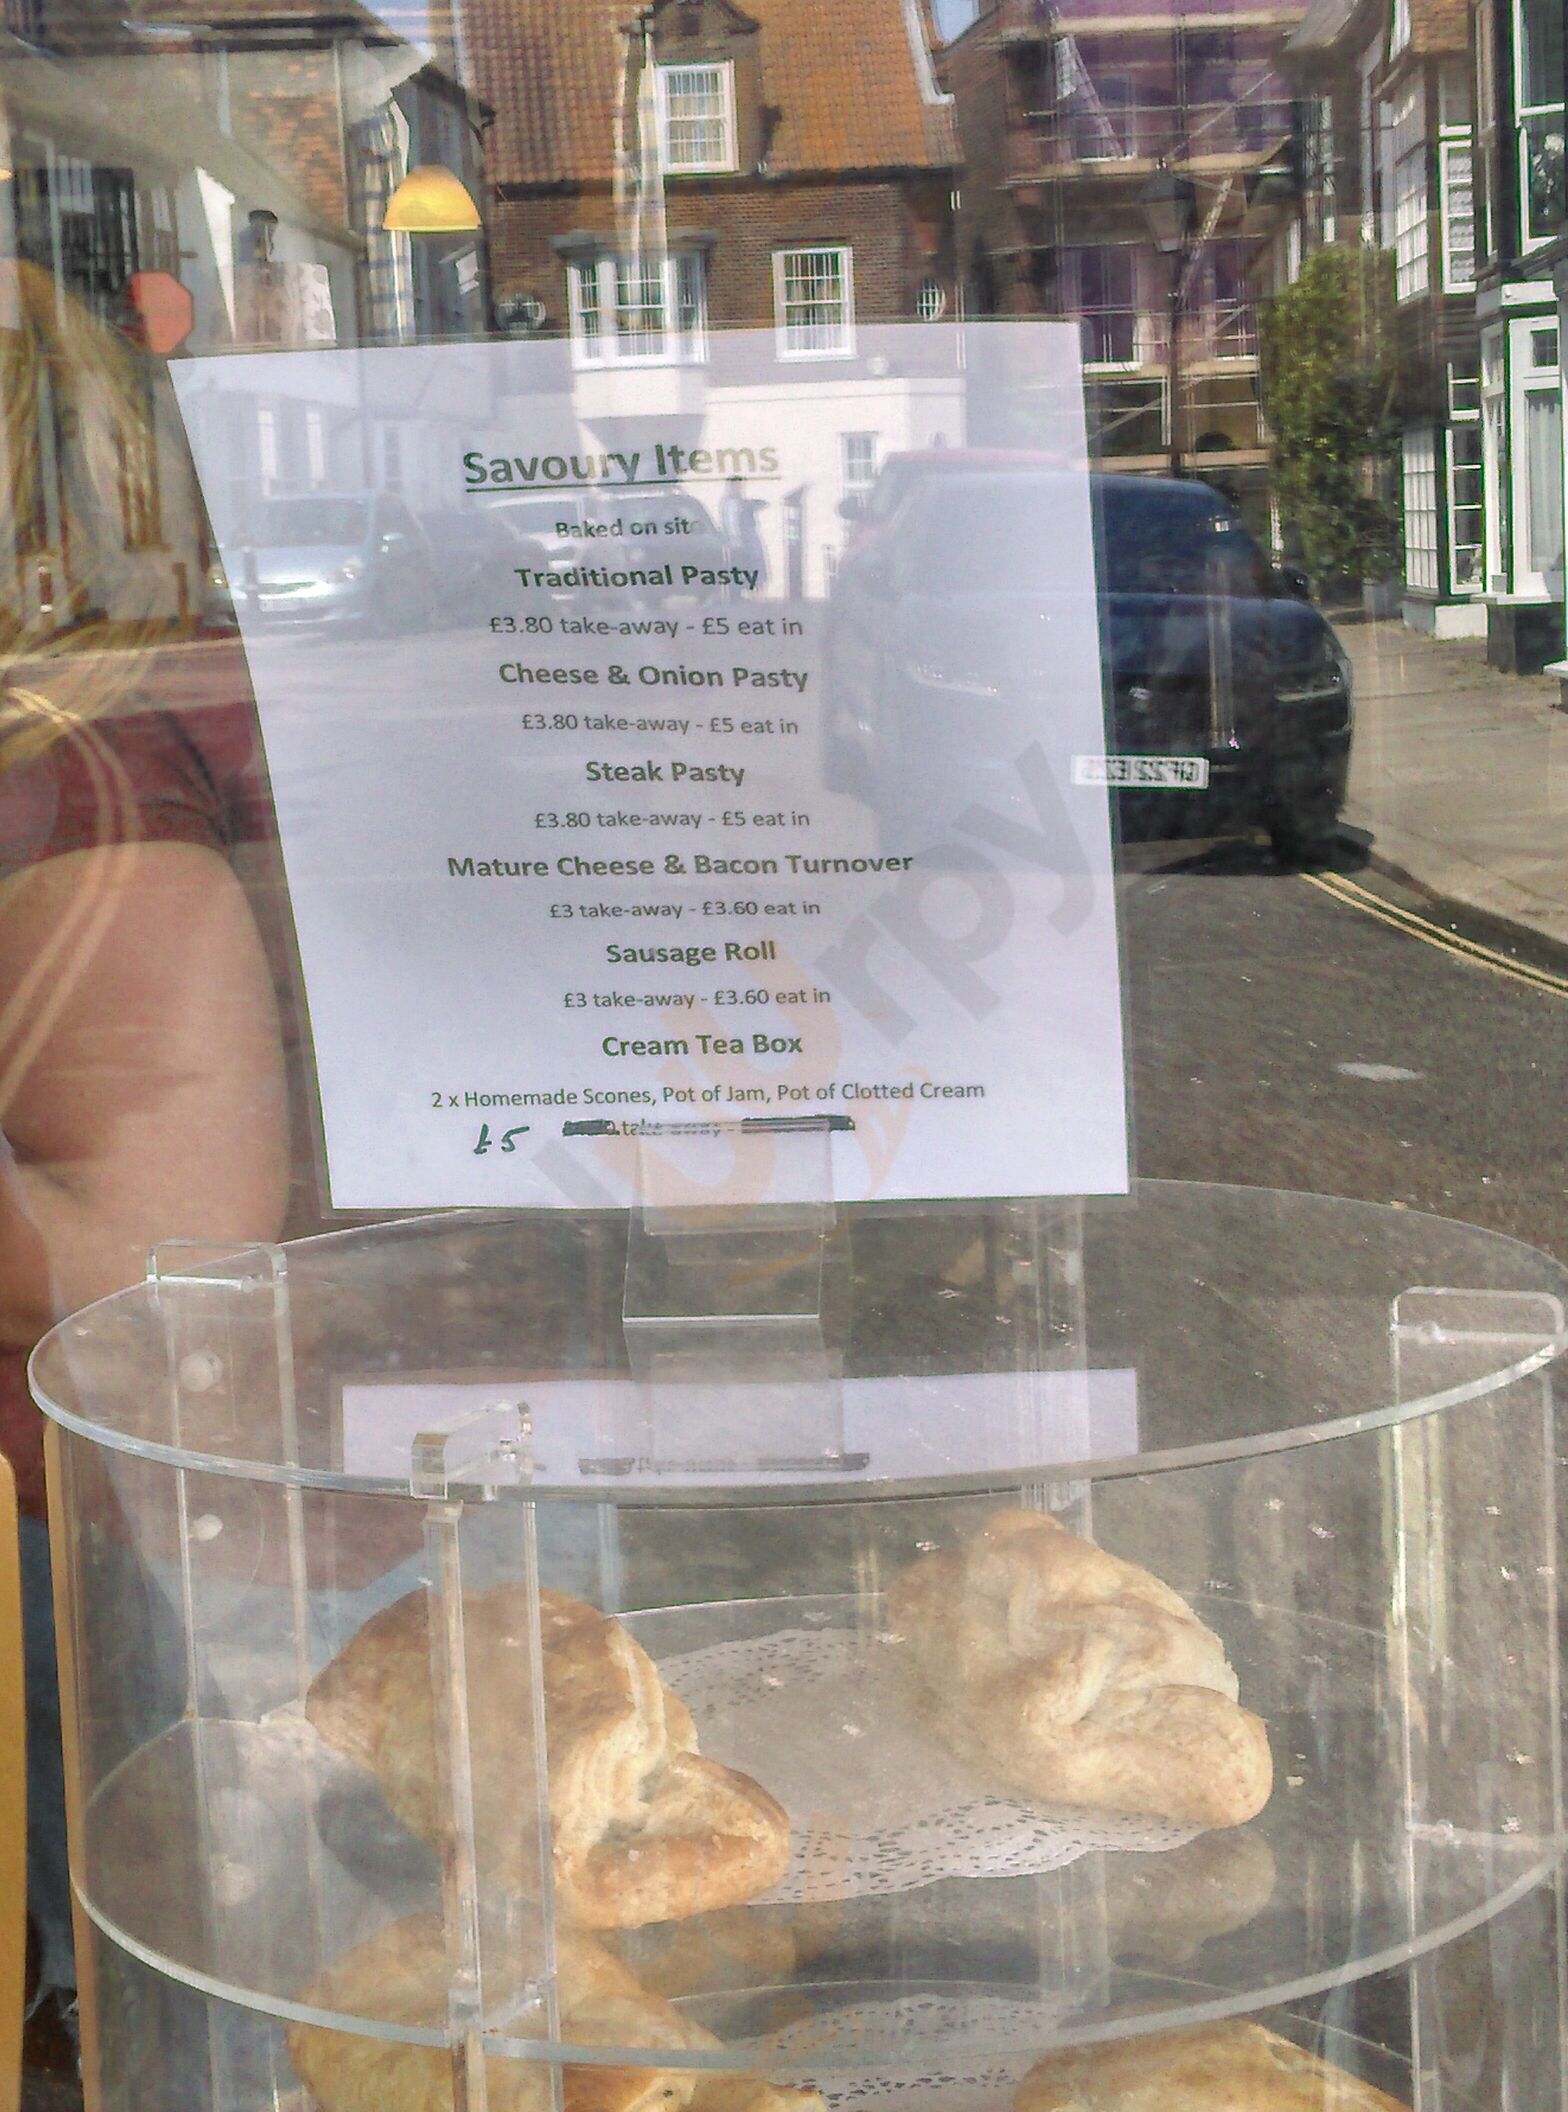 Savoury Items
Baked on site
Traditional Pasty
£3.80 take-away - £5 eat in
Cheese & Onion Pasty
£3.80 take-away - £5 eat in
Steak Pasty
£3.80 take-away - £5 eat in
Mature Cheese & Bacon Turnover
£3 take-away - £3.60 eat in
Sausage Roll
£3 take-away - £3.60 eat in
Cream Tea Box
2 x Homemade Scones, Pot of Jam, Pot of Clotted Cream
£5 take-away -